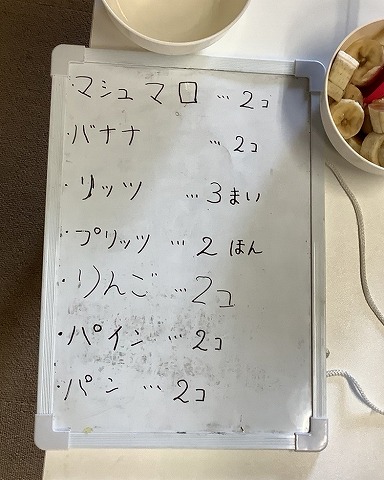 ・マシュマロ … 2コ
・バナナ … 2コ
・リッツ … 3まい
・プリッツ … 2ほん
・りんご … 2コ
・パイン … 2コ
・パン … 2コ